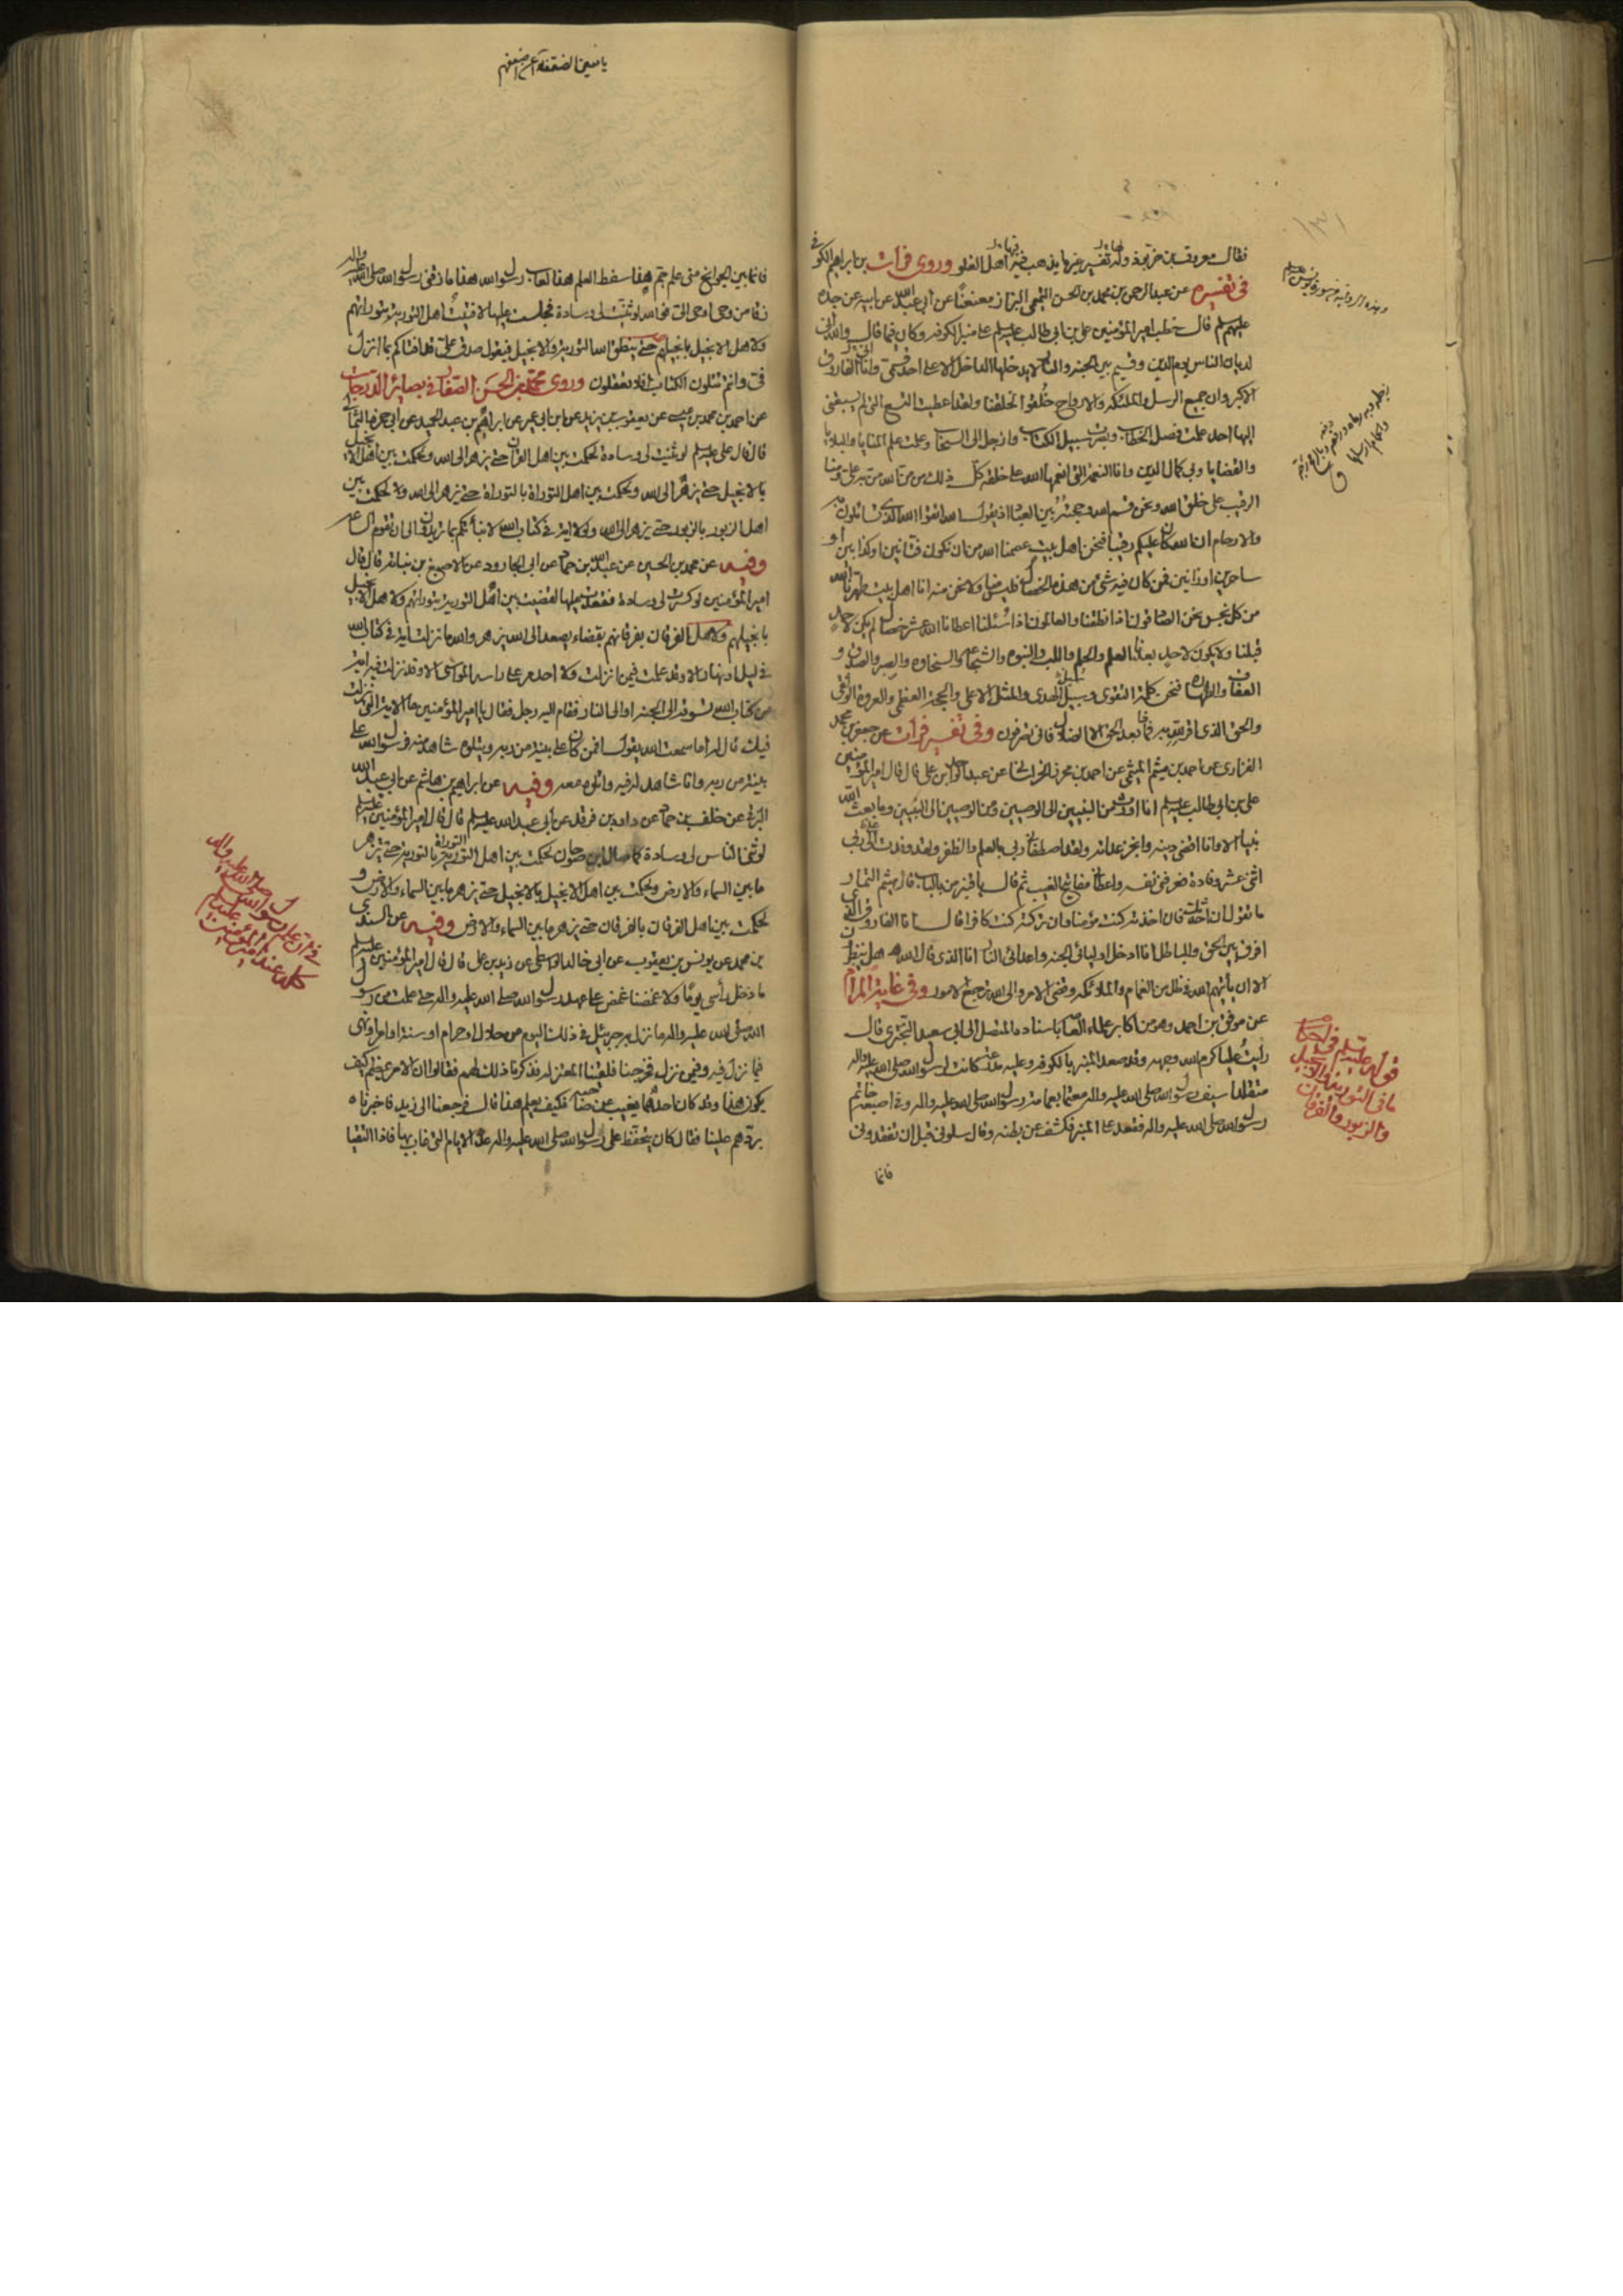 فقال معروف بن خربوذ وله تفسير غير ما يذهب فيه اهل الغلو وروى فرات بن ابراهيم الكوفى
فى تفسيره عن عبد الرحمن بن محمد بن الحسن التيمى البزاز معنعنا عن ابى عبد الله عن ابيه عن جده
عليهم السلم قال خطب امير المؤمنين على بن ابى طالب عليه السلم على منبر الكوفه وكان فيما قال والله انى
لديان الناس يوم الدين وقسيم بين الجنه والنار لا يدخلها الداخل الا على احد قسمى وانا الفاروق
الاكبر وان جميع الرسل والملئكه والارواح خلقوا لخلقنا ولقد اعطيت التسع التى لم يسبقنى
اليها احد علمت فصل الخطاب وبصرت سبيل الكتاب وازجل الى السحاب وعلمت علم المنايا والبلايا
والقضايا وبى كمال الدين وانا النعمه التى انعمها الله على خلقه كل ذلك من من الله من به على ومنا
الرقيب على خلق الله ونحن قسم الله وحجته بين العباد اذ يقول الله اتقوا الله الذى تسائلون به
والارحام ان الله كان عليكم رقيبا فنحن اهل بيت عصمنا الله من ان نكون فتانين او كذابين او
ساحرين او زيانين فمن كان فيه شئ من هذه الخصال فليس منا ولا نحن منه انا اهل بيت طهرنا الله
من كل نجس نحن الصادقون اذا نطقنا والعالمون اذا سئلنا اعطانا الله عشر خصال لم يكن لاحد
قبلنا ولا يكون لاحد بعدنا العلم والحلم واللب والنبوه والشجاعه والسخاوه والصبر والصدق و
العفاف والطهاره فنحن كلمة التقوى وسبيل الهدى والمثل الاعلى والحجة العظمى والعروة الوثقى
والحق الذى اقر الله به فماذا بعد الحق الا الضلال فانى تصرفون وفى تفسير فرات عن جعفر بن محمد
الفزارى عن احمد بن ميثم الميثمى عن احمد بن محرز الخراسانى عن عبد الواحد بن على قال قال امير المؤمنين
على بن ابى طالب عليه السلم انا اؤدى من النبيين الى الوصيين ومن الوصيين الى النبيين وما بعث الله
نبيا الا وانا اقضى دينه وانجز عداته ولقد اصطفانى ربى بالعلم والظفر ولقد وفدت الى ربى
اثنى عشر وفادة فعرفنى نفسه واعطانى مفاتيح الغيب ثم قال يا قنبر من بالباب قال ميثم التمار
ما تقول ان احدثك فان اخذته كنت مؤمنا وان تركته كنت كافرا قال انا الفاروق الذى
افرق بين الحق والباطل انا ادخل اوليائى الجنه واعدائى النار انا الذى قال الله هل ينظرون
الا ان يأتيهم الله فى ظلل من الغمام والملائكه وقضى الامر والى الله ترجع الامور وفى غاية المرام
عن موفق بن احمد وهو من اكابر علماء العامه باسناده المتصل الى ابى سعيد التجترى قال
رأيت عليا كرم الله وجهه وقد صعد المنبر بالكوفه وعليه مدرعة كانت لرسول الله صلى الله عليه واله
متقلدا سيف رسول الله صلى الله عليه واله معتما بعمامة رسول الله صلى الله عليه واله وفى اصبعه خاتم
رسول الله صلى الله عليه واله فقعد على المنبر فكشف عن بطنه وقال سلونى قبل ان تفقدونى
فانما
قوله عليه السلم فى احكام
ما فى التورية والانجيل
والزبور والفرقان
فانما بين الجوانح منى علم جم هذا سفط العلم هذا لعاب رسول الله هذا ما زقنى رسول الله صلى الله عليه واله
زقا من وحى اوحى الى فوالله لو ثنيت لى وسادة فجلست عليها لافتيت اهل التورية بتوراتهم
ولاهل الانجيل بانجيلهم حتى ينطق الله التورية والانجيل فيقول صدق على قد افتاكم بما انزل
فى وانتم تتلون الكتاب افلا تعقلون وروى محمد بن الحسن الصفار فى بصائر الدرجات
عن احمد بن محمد بن عيسى عن يعقوب بن يزيد عن ابن ابى عمير عن ابراهيم بن عبد الحميد عن ابى حمزه الثمالى
قال قال على عليه السلم لو ثنيت لى وسادة لحكمت بين اهل القران بالقران حتى يزهر الى الله ولحكمت بين اهل الانجيل
بالانجيل حتى يزهر الى الله ولحكمت بين اهل التوراة بالتوراة حتى يزهر الى الله ولحكمت بين
اهل الزبور بالزبور حتى يزهر الى الله ولولا اية فى كتاب الله لانبأتكم بما يكون الى ان تقوم الساعه
وفيه عن محمد بن الحسين عن عبد الله بن حماد عن ابى الجارود عن الاصبغ بن نباته قال قال
امير المؤمنين لو كسرت لى وسادة فقعدت عليها لقضيت بين اهل التورية بتوراتهم ولاهل الانجيل
بانجيلهم ولاهل الفرقان بفرقانهم بقضاء يصعد الى الله يزهر والله ما نزلت اية فى كتاب الله
فى ليل او نهار الا وقد علمت فيمن انزلت ولا احد مر على راسه المواسى الا وقد نزلت فيه اية
من كتاب الله تسوقه الى الجنه او الى النار فقام اليه رجل فقال يا امير المؤمنين ما الاية التى نزلت
فيك قال له اما سمعت الله يقول افمن كان على بينة من ربه ويتلوه شاهد منه فرسول الله على
بينة من ربه وانا شاهد له فيه واتلوه معه وفيه عن ابراهيم بن هاشم عن ابى عبد الله
البرقى عن خلف بن حماد عن داود بن فرقد عن ابى عبد الله عليه السلم قال قال امير المؤمنين عليه السلم
لو ثنى الناس لى وسادة كما ثنى لابن صوحان لحكمت بين اهل التورية بالتورية حتى تزهر
ما بين السماء والارض ولحكمت بين اهل الانجيل بالانجيل حتى يزهر ما بين السماء والارض و
لحكمت بين اهل الفرقان بالفرقان حتى يزهر ما بين السماء والارض وفيه عن السندى
بن محمد عن يونس بن يعقوب عن ابى خالد الواسطى عن زيد بن على قال قال امير المؤمنين عليه السلم
ما دخل رأسى يوما ولا غمضا غمض على عهد رسول الله صلى الله عليه واله حتى علمت من رسول
الله صلى الله عليه واله ما نزل به جبرئيل فى ذلك اليوم من حلال او حرام او سنة او امر او نهى
فيما نزل فيه وفيمن نزل فخرجنا فلقينا المعتزله فذكرنا ذلك لهم فقالوا ان الامر عظيم كيف
يكون هذا وقد كان احدهما يغيب عن صاحبه فكيف يعلم هذا قال فرجعنا الى زيد فاخبرناه
بردهم علينا فقال كان يتحفظ على رسول الله صلى الله عليه واله عدد الايام التى غاب بها فاذا التقيا
فى ان علم رسول الله صلى الله عليه واله
كله عند امير المؤمنين عليه السلم